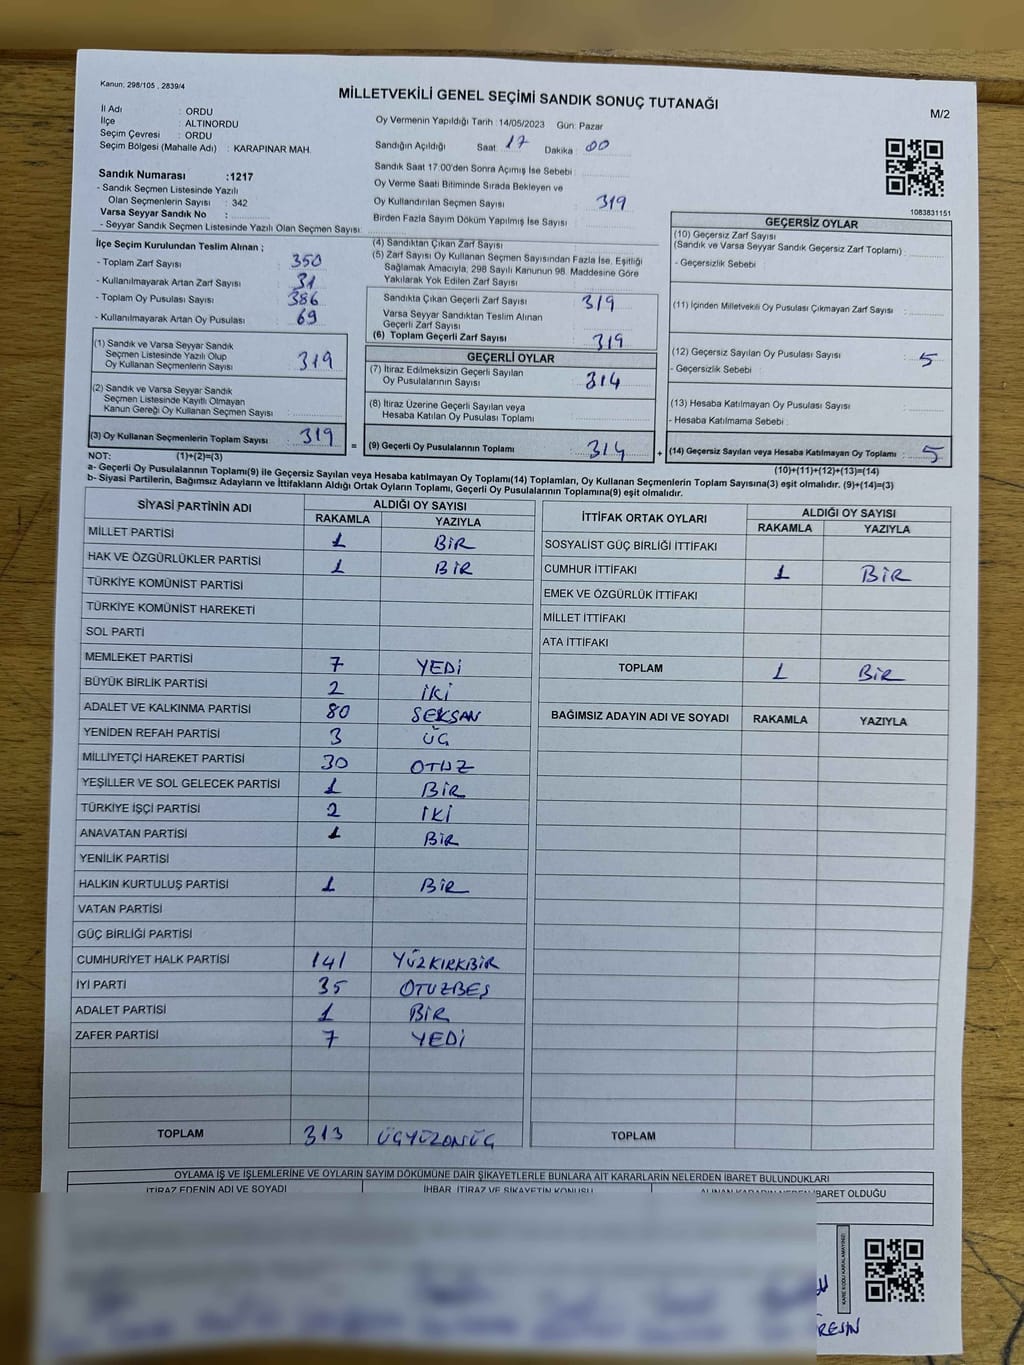 Kanun: 298/105 , 2839/4
MİLLETVEKİLİ GENEL SEÇİMİ SANDIK SONUÇ TUTANAĞI
M/2
İl Adı : ORDU
İlçe : ALTINORDU
Seçim Çevresi : ORDU
Seçim Bölgesi (Mahalle Adı) : KARAPINAR MAH.
Oy Vermenin Yapıldığı Tarih :14/05/2023 Gün: Pazar
Sandığın Açıldığı Saat 17 Dakika : 00
Sandık Saat 17:00'den Sonra Açımış İse Sebebi :
Oy Verme Saati Bitiminde Sırada Bekleyen ve
Oy Kullandırılan Seçmen Sayısı : 319
Birden Fazla Sayım Döküm Yapılmış İse Sayısı :
Sandık Numarası :1217
- Sandık Seçmen Listesinde Yazılı
Olan Seçmenlerin Sayısı : 342
Varsa Seyyar Sandık No :
- Seyyar Sandık Seçmen Listesinde Yazılı Olan Seçmen Sayısı:
1083831151
İlçe Seçim Kurulundan Teslim Alınan ;
- Toplam Zarf Sayısı : 350
- Kullanılmayarak Artan Zarf Sayısı : 31
- Toplam Oy Pusulası Sayısı : 386
- Kullanılmayarak Artan Oy Pusulası : 69
(1) Sandık ve Varsa Seyyar Sandık
Seçmen Listesinde Yazılı Olup
Oy Kullanan Seçmenlerin Sayısı : 319
(2) Sandık ve Varsa Seyyar Sandık
Seçmen Listesinde Kayıtlı Olmayan
Kanun Gereği Oy Kullanan Seçmen Sayısı :
(3) Oy Kullanan Seçmenlerin Toplam Sayısı : 319
(4) Sandıktan Çıkan Zarf Sayısı :
(5) Zarf Sayısı Oy Kullanan Seçmen Sayısından Fazla İse, Eşitliği
Sağlamak Amacıyla; 298 Sayılı Kanunun 98. Maddesine Göre
Yakılarak Yok Edilen Zarf Sayısı :
Sandıkta Çıkan Geçerli Zarf Sayısı : 319
Varsa Seyyar Sandıktan Teslim Alınan
Geçerli Zarf Sayısı :
(6) Toplam Geçerli Zarf Sayısı : 319
GEÇERLİ OYLAR
(7) İtiraz Edilmeksizin Geçerli Sayılan
Oy Pusulalarının Sayısı : 314
(8) İtiraz Üzerine Geçerli Sayılan veya
Hesaba Katılan Oy Pusulası Toplamı :
= (9) Geçerli Oy Pusulalarının Toplamı : 314 +
GEÇERSİZ OYLAR
(10) Geçersiz Zarf Sayısı
(Sandık ve Varsa Seyyar Sandık Geçersiz Zarf Toplamı) :
- Geçersizlik Sebebi :
(11) İçinden Milletvekili Oy Pusulası Çıkmayan Zarf Sayısı :
(12) Geçersiz Sayılan Oy Pusulası Sayısı : 5
- Geçersizlik Sebebi :
(13) Hesaba Katılmayan Oy Pusulası Sayısı :
- Hesaba Katılmama Sebebi :
(14) Geçersiz Sayılan veya Hesaba Katılmayan Oy Toplamı : 5
NOT: (1)+(2)=(3)
(10)+(11)+(12)+(13)=(14)
a- Geçerli Oy Pusulalarının Toplamı(9) ile Geçersiz Sayılan veya Hesaba katılmayan Oy Toplamı(14) Toplamları, Oy Kullanan Seçmenlerin Toplam Sayısına(3) eşit olmalıdır. (9)+(14)=(3)
b- Siyasi Partilerin, Bağımsız Adayların ve İttifakların Aldığı Ortak Oyların Toplamı, Geçerli Oy Pusulalarının Toplamına(9) eşit olmalıdır.
SİYASİ PARTİNİN ADI ALDIĞI OY SAYISI
RAKAMLA YAZIYLA
MİLLET PARTİSİ 1 BİR
HAK VE ÖZGÜRLÜKLER PARTİSİ 1 BİR
TÜRKİYE KOMÜNİST PARTİSİ
TÜRKİYE KOMÜNİST HAREKETİ
SOL PARTİ
MEMLEKET PARTİSİ 7 YEDİ
BÜYÜK BİRLİK PARTİSİ 2 İKİ
ADALET VE KALKINMA PARTİSİ 80 SEKSAN
YENİDEN REFAH PARTİSİ 3 ÜÇ
MİLLİYETÇİ HAREKET PARTİSİ 30 OTUZ
YEŞİLLER VE SOL GELECEK PARTİSİ 1 BİR
TÜRKİYE İŞÇİ PARTİSİ 2 İKİ
ANAVATAN PARTİSİ 1 BİR
YENİLİK PARTİSİ
HALKIN KURTULUŞ PARTİSİ 1 BİR
VATAN PARTİSİ
GÜÇ BİRLİĞİ PARTİSİ
CUMHURİYET HALK PARTİSİ 141 YÜZKIRKBİR
İYİ PARTİ 35 OTUZBEŞ
ADALET PARTİSİ 1 BİR
ZAFER PARTİSİ 7 YEDİ
TOPLAM 313 ÜÇYÜZONÜÇ
İTTİFAK ORTAK OYLARI ALDIĞI OY SAYISI
RAKAMLA YAZIYLA
SOSYALİST GÜÇ BİRLİĞİ İTTİFAKI
CUMHUR İTTİFAKI 1 BİR
EMEK VE ÖZGÜRLÜK İTTİFAKI
MİLLET İTTİFAKI
ATA İTTİFAKI
TOPLAM 1 BİR
BAĞIMSIZ ADAYIN ADI VE SOYADI RAKAMLA YAZIYLA
TOPLAM
OYLAMA İŞ VE İŞLEMLERİNE VE OYLARIN SAYIM DÖKÜMÜNE DAİR ŞİKAYETLERLE BUNLARA AİT KARARLARIN NELERDEN İBARET BULUNDUKLARI
İTİRAZ EDENİN ADI VE SOYADI İHBAR, İTİRAZ VE ŞİKAYETİN KONUSU ALINAN KARARIN NEDEN İBARET OLDUĞU